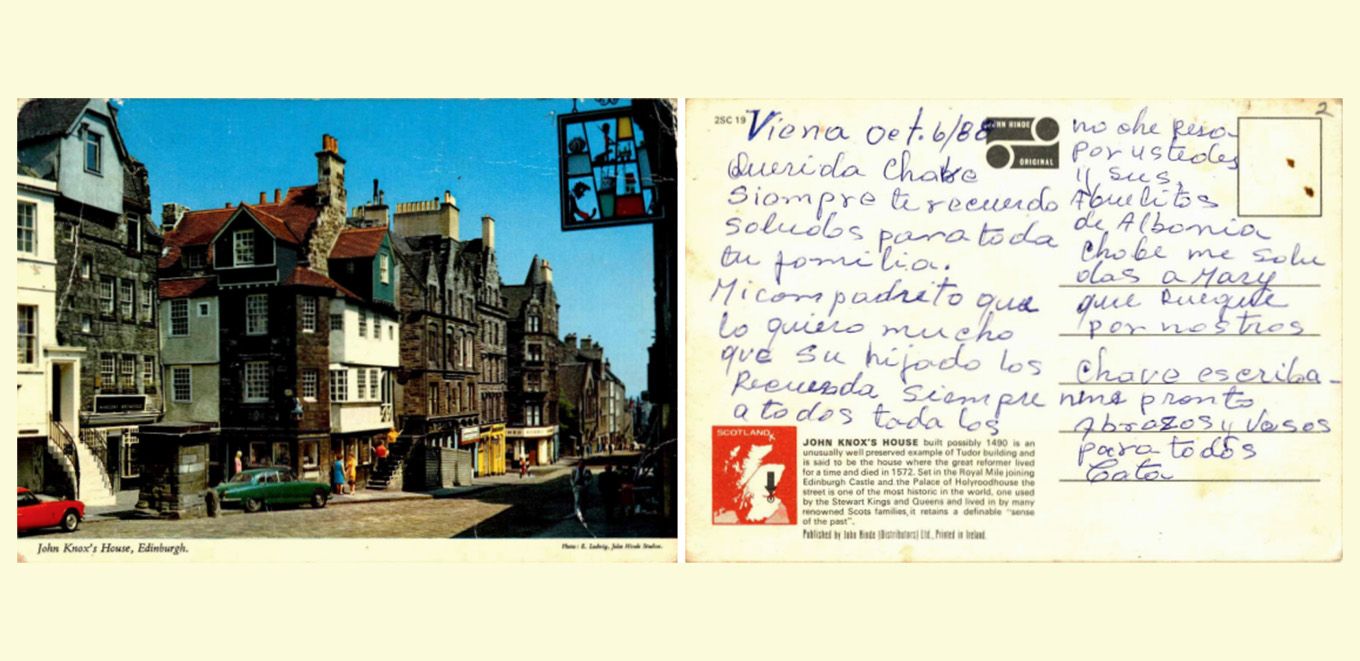 John Knox's House, Edinburgh.
Photo: E. Ludwig, John Hinde Studios.
2SC 19
Viena Oct. 6/88
JOHN HINDE
ORIGINAL
2
Querida Chave
Siempre te recuerdo
saludos para toda
tu familia.
Mi compadrito que
lo quiero mucho
que su hijado los
Recuerda siempre
a todos toda los
noche Resa
por ustedes
y sus
Abuelitos
de Albania
Chabe me salu
das a Mary
que Ruegue
por nostros
Chave escriba-
nme pronto
Abrazos y veses
para todos
Cata
SCOTLAND
JOHN KNOX'S HOUSE built possibly 1490 is an
unusually well preserved example of Tudor building and
is said to be the house where the great reformer lived
for a time and died in 1572. Set in the Royal Mile joining
Edinburgh Castle and the Palace of Holyroodhouse the
street is one of the most historic in the world, one used
by the Stewart Kings and Queens and lived in by many
renowned Scots families, it retains a definable "sense
of the past".
Published by John Hinde (Distributors) Ltd., Printed in Ireland.